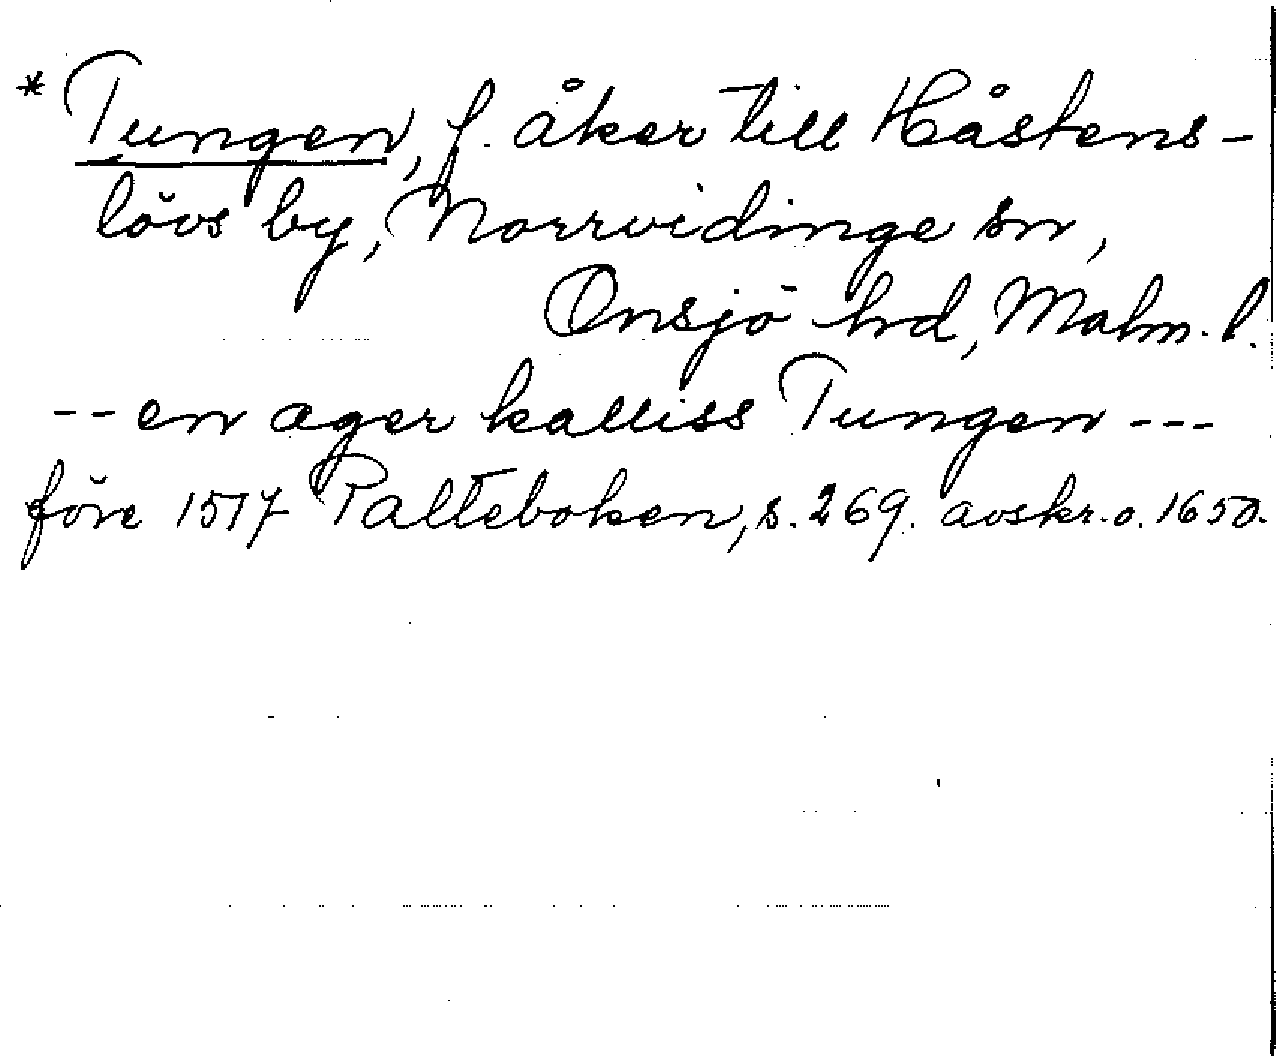 * Tungen, f. åker till Håstens-
lövs by, Norrvidinge sn,
Onsjö hrd, Malm. l.
-- en ager kalliss Tungen ---
före 1517 Palteboken, s. 269. avskr. o. 1650.